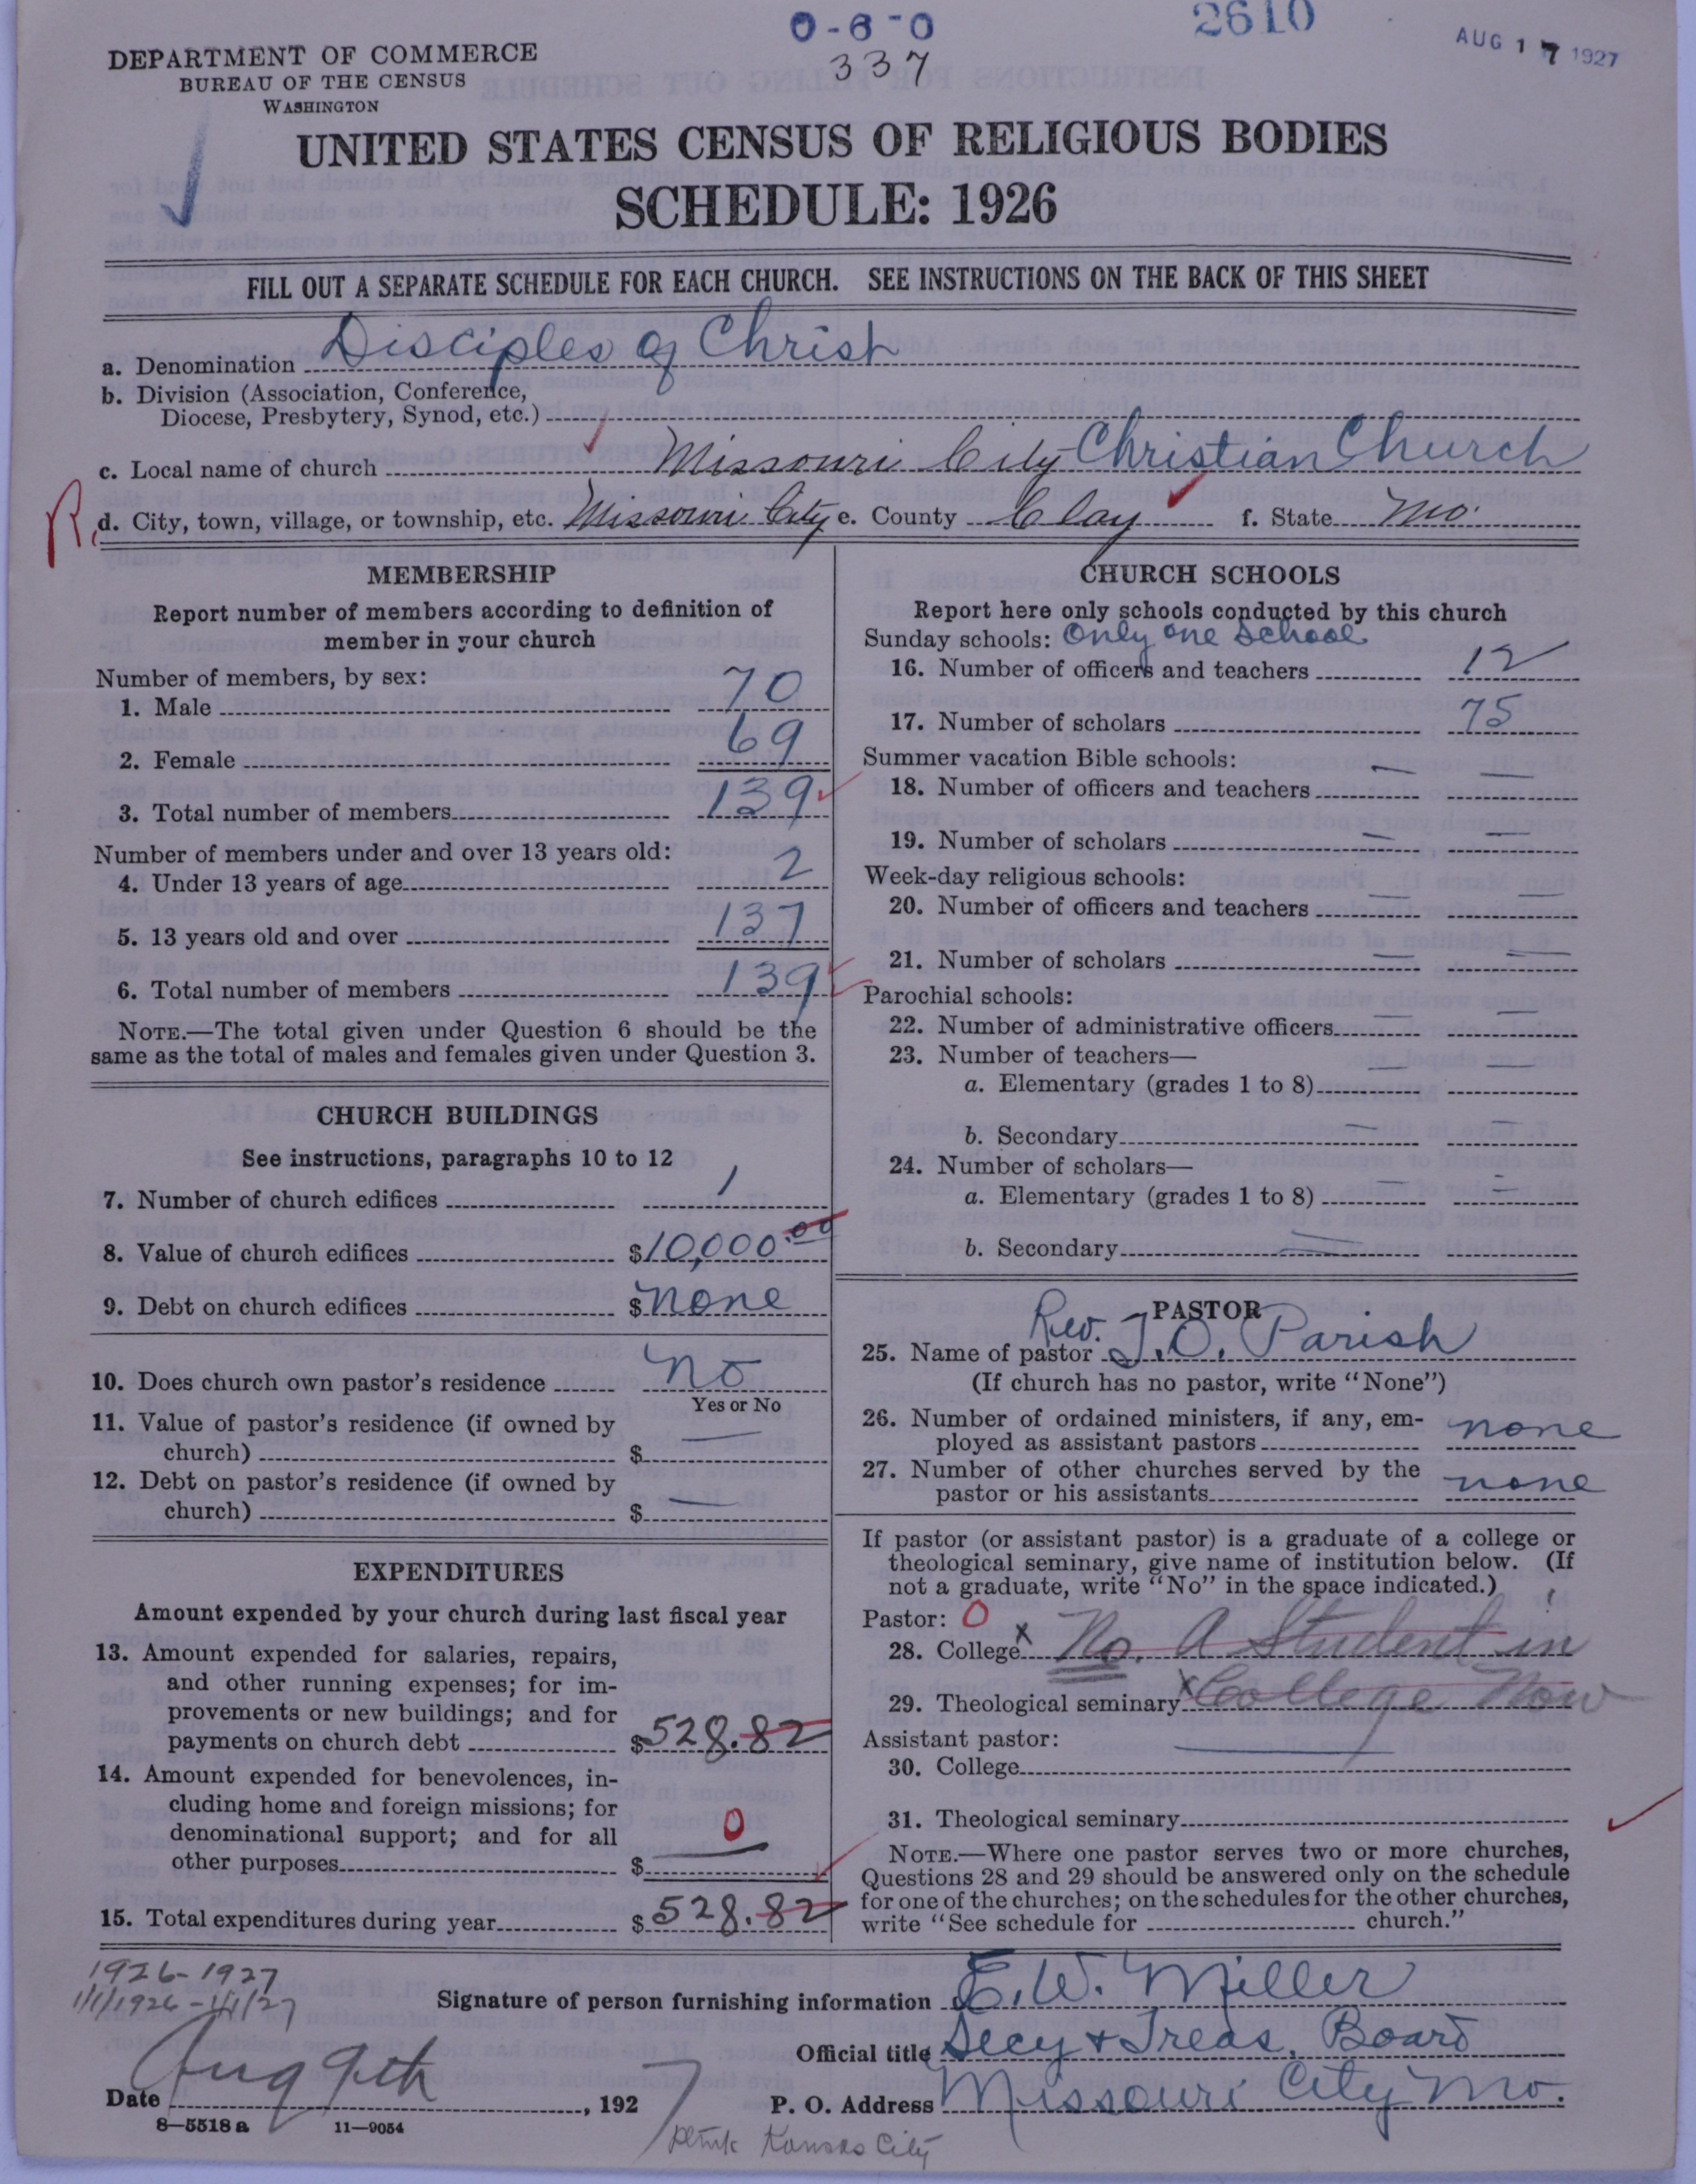 0-6-0
2610
337
AUG 17 1927
DEPARTMENT OF COMMERCE
BUREAU OF THE CENSUS
WASHINGTON
UNITED STATES CENSUS OF RELIGIOUS BODIES
SCHEDULE: 1926
FILL OUT A SEPARATE SCHEDULE FOR EACH CHURCH. SEE INSTRUCTIONS ON THE BACK OF THIS SHEET
a. Denomination Disciples of Christ
b. Division (Association, Conference,
Diocese, Presbytery, Synod, etc.)
c. Local name of church Missouri City Christian Church
R. d. City, town, village, or township, etc. Missouri City e. County Clay f. State Mo.
MEMBERSHIP
Report number of members according to definition of
member in your church
Number of members, by sex:
1. Male 70
2. Female 69
3. Total number of members 139
Number of members under and over 13 years old:
4. Under 13 years of age 2
5. 13 years old and over 137
6. Total number of members 139
NOTE.—The total given under Question 6 should be the
same as the total of males and females given under Question 3.
CHURCH BUILDINGS
See instructions, paragraphs 10 to 12
7. Number of church edifices 1
8. Value of church edifices $10,000.00
9. Debt on church edifices $none
10. Does church own pastor's residence No
Yes or No
11. Value of pastor's residence (if owned by
church) $ —
12. Debt on pastor's residence (if owned by
church) $ —
EXPENDITURES
Amount expended by your church during last fiscal year
13. Amount expended for salaries, repairs,
and other running expenses; for im-
provements or new buildings; and for
payments on church debt $528.82
14. Amount expended for benevolences, in-
cluding home and foreign missions; for
denominational support; and for all
other purposes $ 0
15. Total expenditures during year $528.82
CHURCH SCHOOLS
Report here only schools conducted by this church
Sunday schools: Only one school
16. Number of officers and teachers 12
17. Number of scholars 75
Summer vacation Bible schools:
18. Number of officers and teachers — —
19. Number of scholars — —
Week-day religious schools:
20. Number of officers and teachers — —
21. Number of scholars — —
Parochial schools:
22. Number of administrative officers — —
23. Number of teachers—
a. Elementary (grades 1 to 8) — —
b. Secondary — —
24. Number of scholars—
a. Elementary (grades 1 to 8) — —
b. Secondary — —
PASTOR
25. Name of pastor Rev. J. O. Parish
(If church has no pastor, write "None")
26. Number of ordained ministers, if any, em-
ployed as assistant pastors none
27. Number of other churches served by the
pastor or his assistants none
If pastor (or assistant pastor) is a graduate of a college or
theological seminary, give name of institution below. (If
not a graduate, write "No" in the space indicated.)
Pastor: 0
28. College x No. A Student in
29. Theological seminary x College Now
Assistant pastor:
30. College
31. Theological seminary
NOTE.—Where one pastor serves two or more churches,
Questions 28 and 29 should be answered only on the schedule
for one of the churches; on the schedules for the other churches,
write "See schedule for church."
1926-1927
1/1/1926-1/1/27
Signature of person furnishing information E. W. Miller
Official title Secy & Treas. Board
Date Aug 9th, 1927
P. O. Address Missouri City Mo.
8—5518 a 11—9054
Kansas City